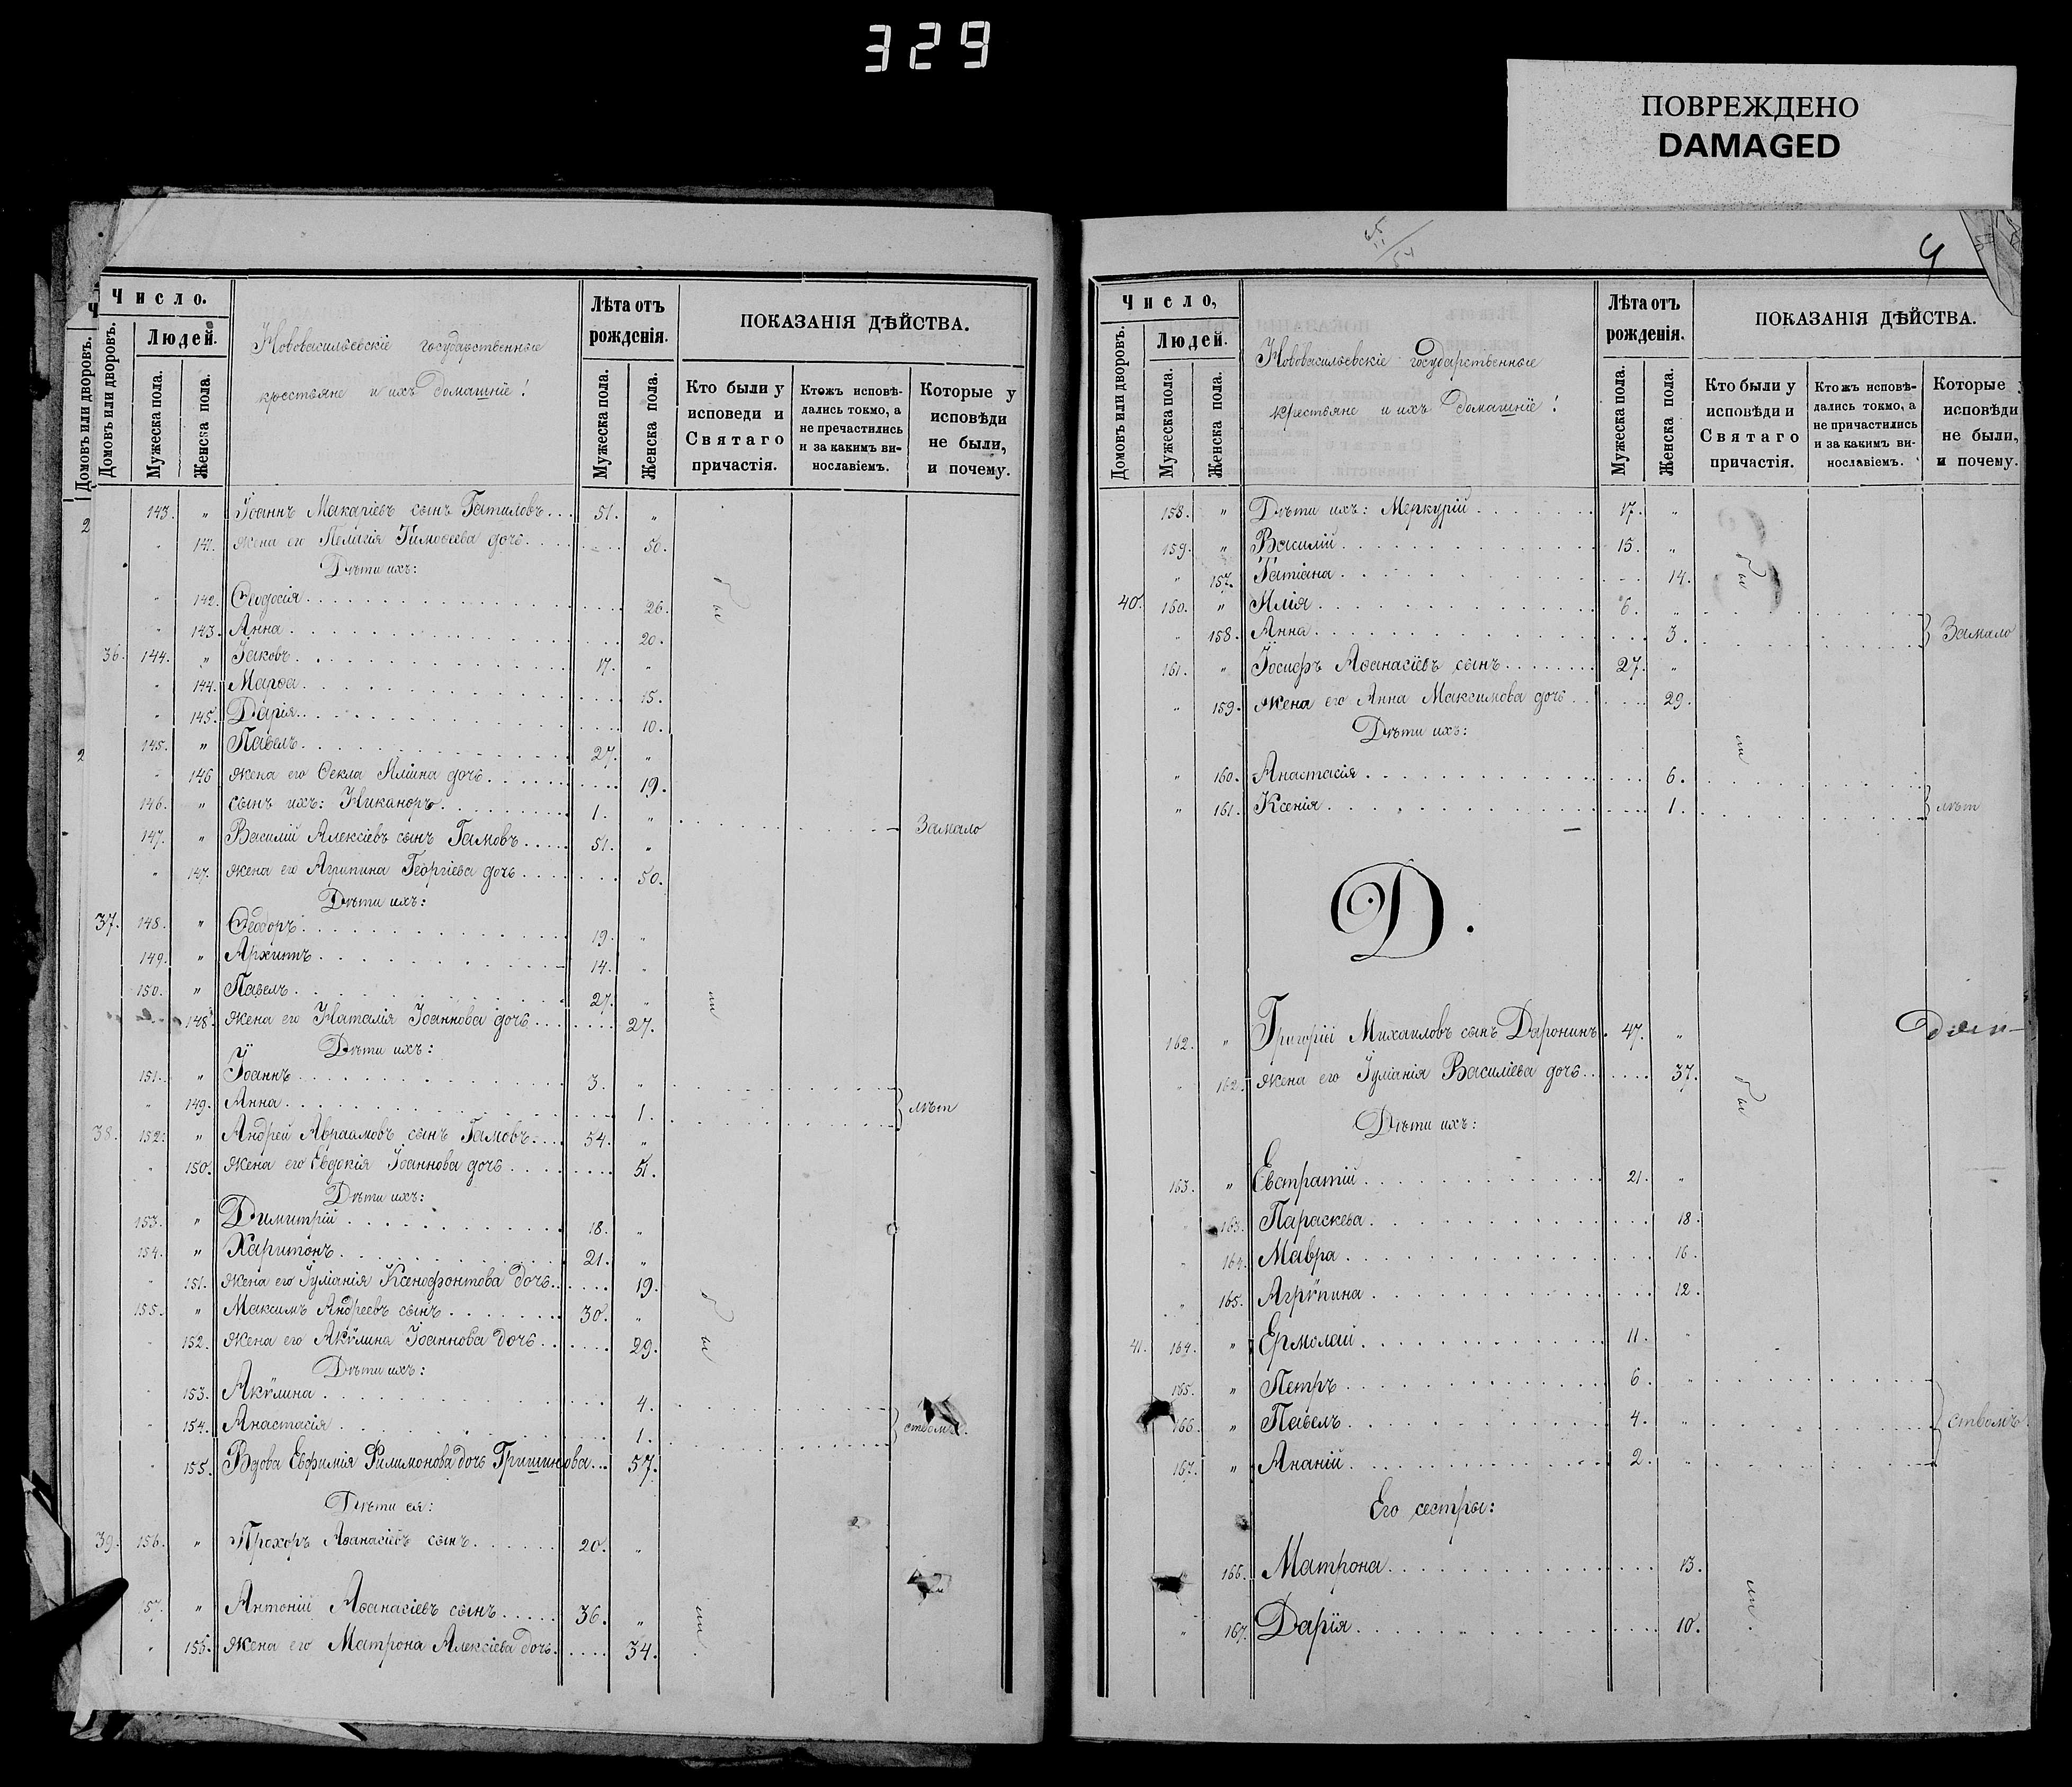 329
ПОВРЕЖДЕНО
DAMAGED
Число.
Домовъ или дворовъ.
Домовъ или дворовъ.
Людей.
Мужеска пола.
Женска пола.
Нововасильевскіе государственные
крестьяне и ихъ домашніе!
Лѣта отъ
рожденія.
Мужеска пола.
Женска пола.
ПОКАЗАНІЯ ДѢЙСТВА.
Кто были у
исповеди и
Святаго
причастія.
Ктожъ исповѣ-
дались токмо, а
не пречастились
и за какимъ ви-
нославіемъ.
Которые у
исповѣди
не были,
и почему.
143. " Іоаннъ Макаріевъ сынъ Гатиловъ... 51. "
141. жена его Пелагія Тимоѳеева дочь.... 50.
Дѣти ихъ:
142. Ѳеодосія.... 26. бы
143. Анна.... 20.
36. 144. " Іаковъ.... 17. "
144. Марѳа.... 15.
145. Дарія.... 10.
145. " Павелъ.... 27. "
146 жена его Ѳекла Иліина дочь.... 19.
146. " сынъ ихъ: Никаноръ.... 1. " Замало
147. " Василій Алексіевъ сынъ Гамовъ.... 51. "
147. жена его Агрипина Георгіева дочь.... 50.
Дѣти ихъ:
37. 148. " Ѳеодоръ.... 19. "
149. " Архипъ.... 14. "
150. " Павелъ.... 27. "
148. жена его Наталія Іоаннова дочь.... 27.
Дѣти ихъ:
151. " Іоаннъ.... 3. "
149. Анна.... 1. лѣт
38. 152. " Андрей Авраамовъ сынъ Гамовъ.... 54. "
150. жена его Евдокія Іоаннова дочь.... 51.
Дѣти ихъ:
153. " Димитрій.... 18. "
154. " Харитонъ.... 21. "
151. жена его Іуліанія Ксенофонтова дочь.... 19.
155. " Максимъ Андреевъ сынъ.... 30. "
152. жена его Акѵлина Іоаннова дочь.... 29. бы
Дѣти ихъ:
153. Акѵлина.... 4.
154. Анастасія.... 1. ствомъ.
155. Вдова Евфимія Филимонова дочь Гришинова... 57.
Дѣти ея:
39. 156. " Прохоръ Аѳанасіевъ сынъ.... 20. "
157. " Антоній Аѳанасіевъ сынъ.... 36. "
156. жена его Матрона Алексіева дочь.... 34.
Число,
Домовъ или дворовъ.
Людей.
Мужеска пола.
Женска пола.
Нововасильевскіе государственные
крестьяне и ихъ домашніе!
Лѣта отъ
рожденія.
Мужеска пола.
Женска пола.
ПОКАЗАНІЯ ДѢЙСТВА.
Кто были у
исповѣди и
Святаго
причастія.
Кто жъ исповѣ-
дались токмо, а
не причастились
и за какимъ ви-
нославіемъ.
Которые у
исповѣди
не были,
и почему.
158. " Дѣти ихъ: Меркурій.... 17. "
159. " Василій.... 15. "
157. Татіана.... 14. бы
40. 160. " Илія.... 6. "
158. Анна.... 3. Замало
161. " Іосифъ Аѳанасіевъ сынъ.... 27. "
159. жена его Анна Максимова дочь.... 29.
Дѣти ихъ:
" 160. Анастасія.... 6.
" 161. Ксенія.... 1. лѣт
Д.
162. " Григорій Михаиловъ сынъ Даронинъ. 47. "
162. жена его Іуліанія Василіева дочь.... 37. бы
Дѣти ихъ:
163. " Евстратій.... 21. "
163. Параскева.... 18.
164. Мавра.... 16.
" 165. Агрѵпина.... 12.
41. 164. " Ермолай.... 11. "
165. " Петръ.... 6. "
166. " Павелъ.... 4. " ствомъ
167. " Ананій.... 2. "
Его сестры:
166. Матрона.... 13.
" 167. Дарія.... 10.